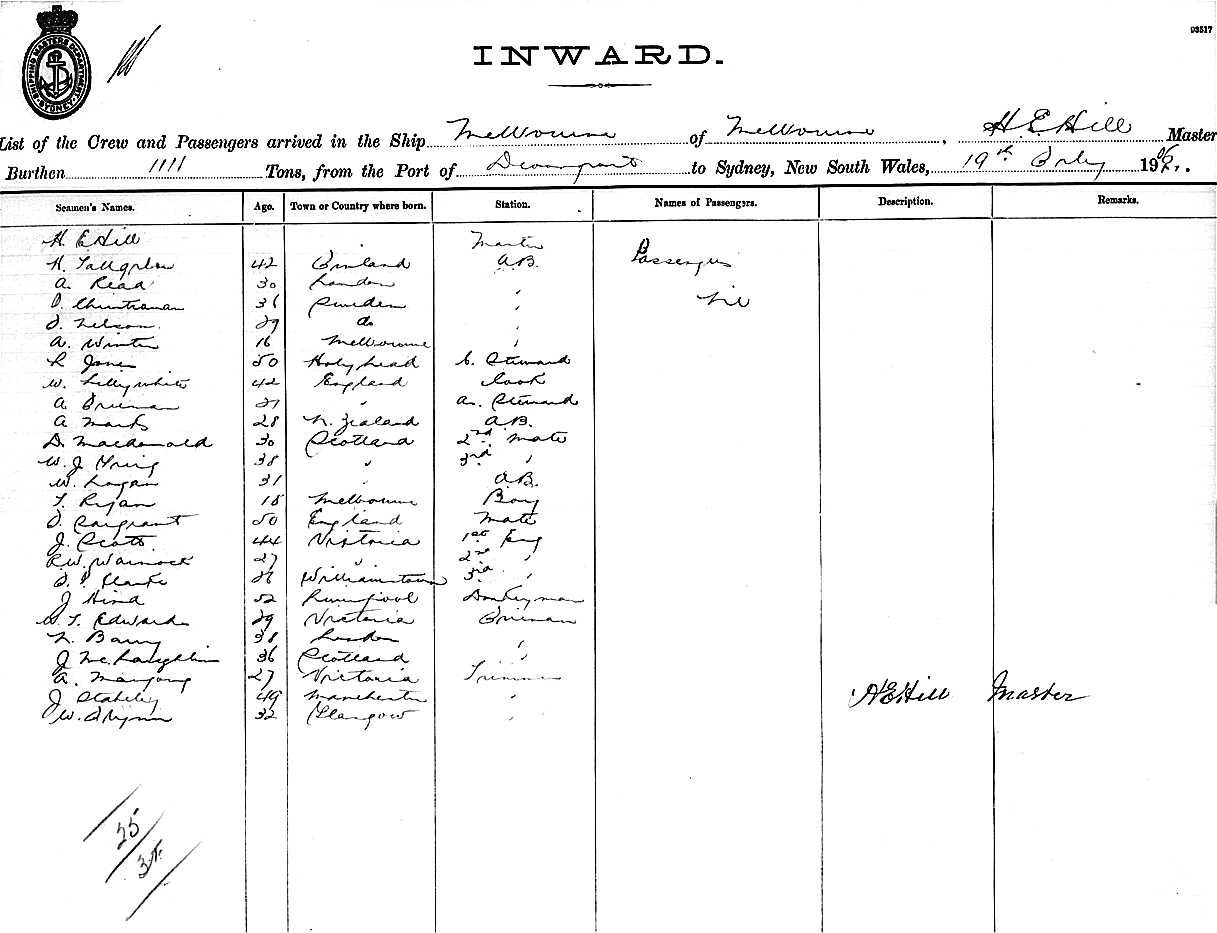 93517
INWARD.
SHIPPING MASTERS DEPARTMENT SYDNEY
List of the Crew and Passengers arrived in the Ship Melbourne of Melbourne, H. E Hill Master
Burthen 1111 Tons, from the Port of Devonport to Sydney, New South Wales, 19th 19
Seamen's Names. Age. Town or Country where born. Station. Names of Passengers. Description. Remarks.
H. E Hill Master
42 Finland A.B. Passengers
A. Read 30 London "
36 Sweden " Nil
J. Nelson 29 do "
A. Winter 16 Melbourne "
R Jones 50 Holyhead C. Steward
W. Lillywhite 42 England Cook
A " As. Steward
A Marks 28 N. Zealand A.B.
D. Macdonald 30 Scotland 2nd Mate
W. J. 38 " 3rd "
W. Logan 31 " A.B.
T. Ryan 18 Melbourne Boy
50 England Mate
J. Scott 44 Victoria 1st Eng
R. W. Warnock 27 " 2nd "
Clarke Williamstown 3rd "
J Hind 52 Liverpool Donkeyman
W. T. Edwards 29 Victoria Fireman
Barry 38 London "
J McLaughlin 36 Scotland "
A. 27 Victoria Trimmer
J 49 Manchester " H E Hill Master
W. 32 Glasgow "
25